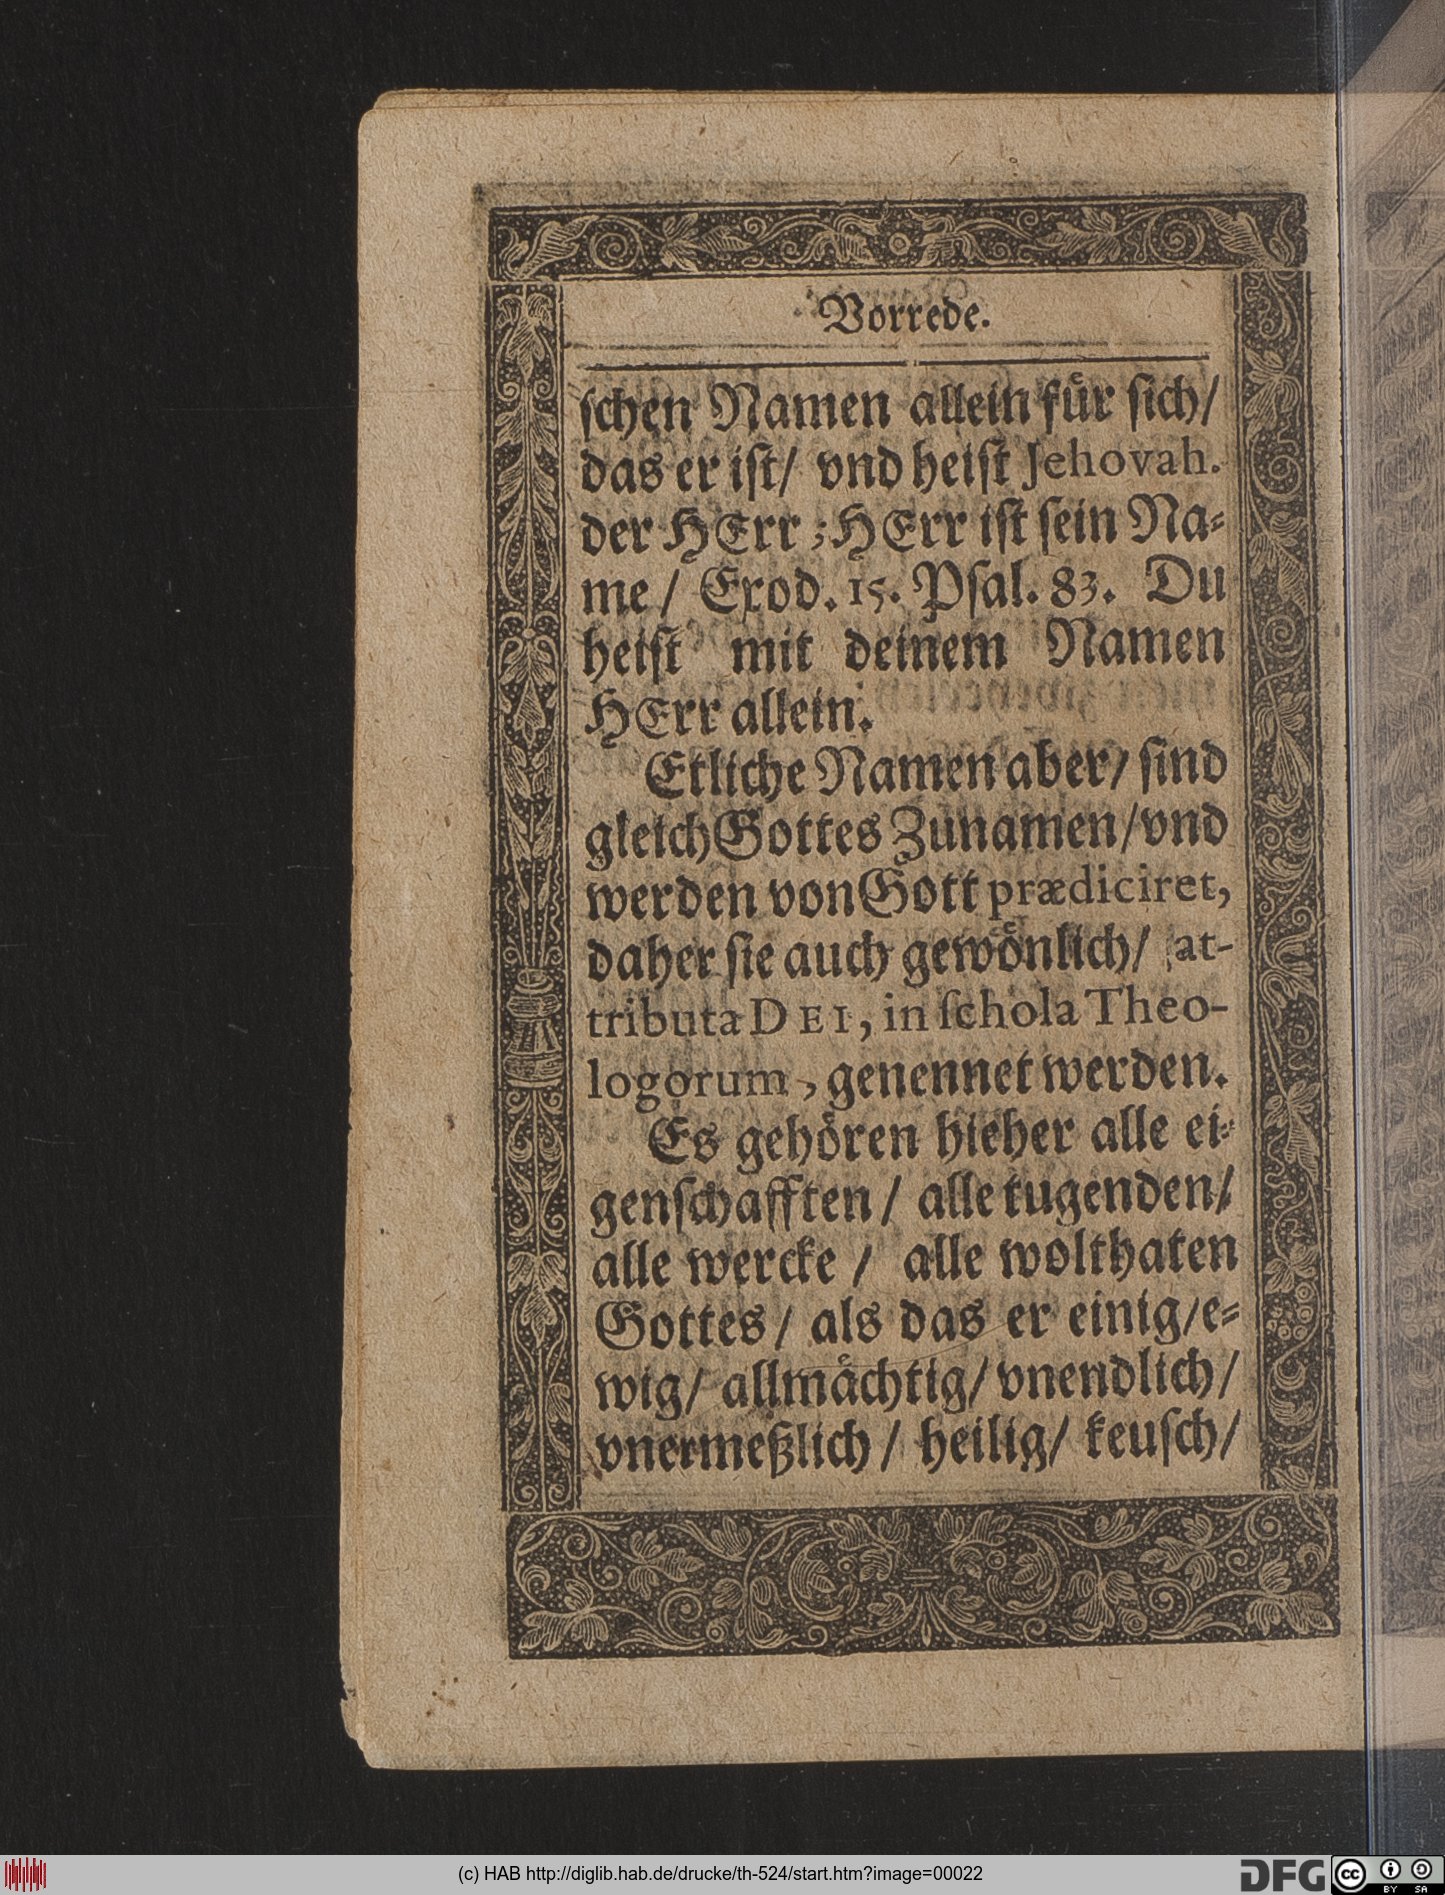 Vorrede.
ſchen Namen allein fuͤr ſich/
das er iſt/ vnd heiſt Jehovah.
der HErr; HErr iſt ſein Na⸗
me / Exod. 15. Pſal. 83. Du
heiſt mit deinem Namen
HErr allein.
Etliche Namen aber/ ſind
gleich Gottes Zunamen/ vnd
werden von Gott prædiciret,
daher ſie auch gewoͤnlich/ at-
tributa DEI, in ſchola Theo-
logorum, genennet werden.
Es gehoͤren hieher alle ei⸗
genſchafften / alle tugenden/
alle wercke / alle wolthaten
Gottes / als das er einig/ e⸗
wig/ allmaͤchtig/ vnendlich/
vnermeßlich / heilig/ keuſch/
(c) HAB http://diglib.hab.de/drucke/th-524/start.htm?image=00022
DFG
cc BY SA